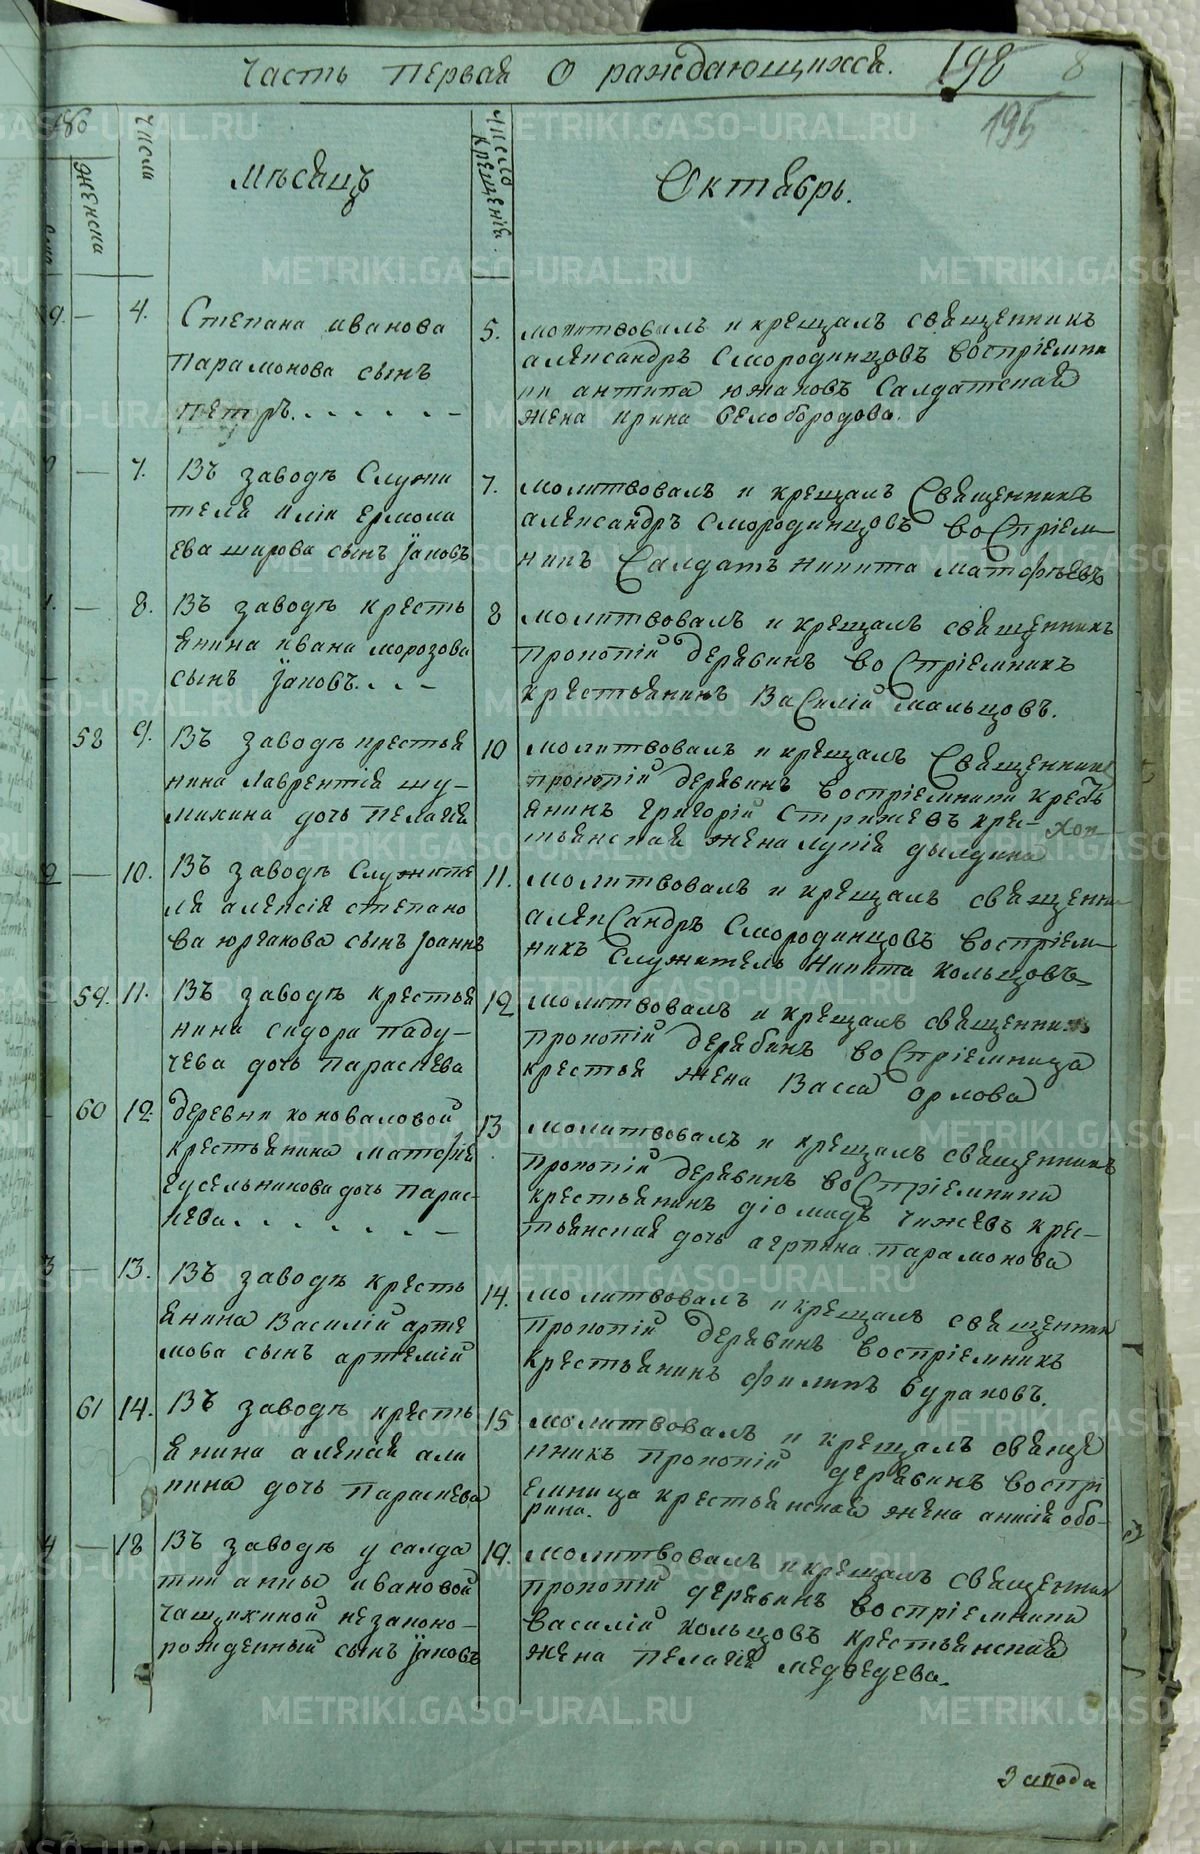 Часть первая о раждающихся. 198 8
195
женска
числа
Мѣсяцъ
число крещенія
Октябрь.
— 4. Степана иванова
парамонова сынъ
петръ. . . . . . . —
5. молитвовалъ и крещалъ священникъ
александръ Смородинцовъ воспріемни
ки антипа южаковъ Салдатская
жена ирина белобородова.
— 7. Въ заводѣ Служи
теля иліи ермола
ева широва сынъ Іаковъ
7. молитвовалъ и крещалъ Священникъ
александръ Смородинцовъ воСпріем-
никъ Салдатъ никита матфѣевъ
— 8. Въ заводѣ кресть
янина ивана морозова
сынъ Іаковъ. . . —
8 молитвовалъ и крещалъ священникъ
прокопій дерябинъ воСпріемникъ
крестьянинъ ВаСилій мальцовъ.
58 9. Въ заводѣ крестья
нина лаврентія шу-
михина дочь пелагія
10 молитвовалъ и крещалъ Священникъ
прокопій дерябинъ воспріемники кресть
янинъ григорій Стрижевъ крес-
тьянская жена лукія дылдина
— 10. Въ заводѣ Служите
ля алексія степано
ва юргакова сынъ Іоаннъ
11. молитвовалъ и крещалъ священни
алекСандръ Смородинцовъ воспріем-
никъ Служитель никита кольцовъ
59. 11. Въ заводѣ крестья
нина сидора паду-
чева дочь параскева
12 молитвовалъ и крещалъ священникъ
прокопій дерябинъ воСпріемница
крестья жена Васса орлова
60 12. деревни коноваловой
крестьянина матфія
гусельникова дочь парас-
кева. . . . . . . —
13 молитвовалъ и крещалъ священникъ
прокопій дерябинъ воСпріемники
крестьянинъ діомидъ чижевъ крес-
тьянская дочь агрпина парамонова
3 — 13. Въ заводѣ кресть
янина Василій арте
мова сынъ артемій
14. молитвовалъ и крещалъ священник
прокопій дерябинъ воспріемникъ
крестьянинъ филипъ бураковъ.
61 14. Въ заводѣ кресть
янина алексія али
кина дочь параскева
15 молитвовалъ и крещалъ священ
нникъ прокопій дерябинъ воспрі
емница крестьянская жена анисія обо-
рина.
4 — 18 Въ заводѣ у салда
тки анны ивановой
чащихиной незаконо-
рожденный сынъ Іаковъ
19. молитвовалъ и крещалъ священник
прокопій дерябинъ воспріемники
Василій кольцовъ крестьянская
жена пелагія медведева.